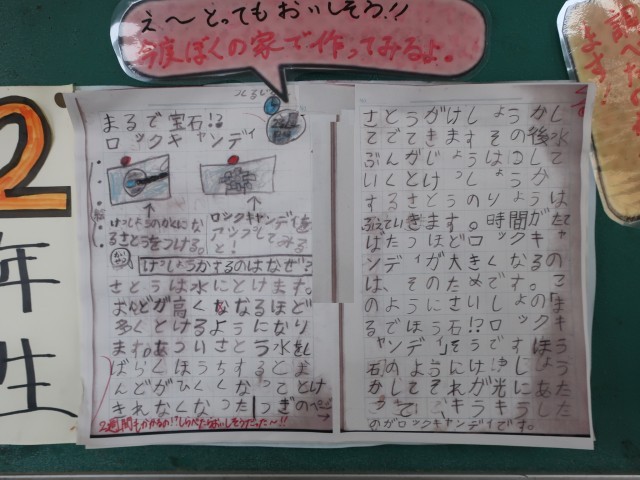 え〜とってもおいしそう!!
今度ぼくの家で作ってみるよ。
まるで宝石!?
ロックキャンディ
けっしょうのかくになるさとうをつける。
ロックキャンディをアップしてみると!
けっしょうかするのはなぜ?
さとうは水にとけます。
おんどが高くなるほど
多くとけるようになり
ます。あついさとう水をし
ばらくほうちするとよ
んどがひくくなってとけ
きれなくなった
つぎのページ
2週間もかかるの!しらべたらおいしそうだった〜!!
さとうがけしょうかし
てでてきますその後水
ぶんがじょうはつして
いくとけっしょうか
するさとうのりょうは
ふえていきます。時間がたて
ばたつほどロックキャ
ンディが大きくなるの
は、そのためです。こ
のようにさいしょの「ま
るでほう石!?ロックキ
ャンディ」そうですほう
石のようにけっしょう
かしてそれが光にあた
って、キラキラした
のがロックキャンディです。
調べた
ます!!
2
年
生